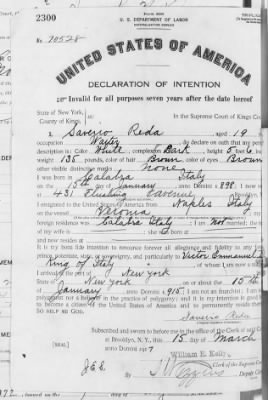 2300
U. S. DEPARTMENT OF LABOR
NATURALIZATION SERVICE
No. 70528
UNITED STATES OF AMERICA
DECLARATION OF INTENTION
Invalid for all purposes seven years after the date hereof
State of New York,
County of Kings,
In the Supreme Court of Kings Co
I, Saverio Reda aged 19
occupation do declare on oath that my personal
description is: Color White, complexion Dark, height 5
weight 135 pounds, color of hair Brown, color of eyes Brown
other visible distinctive marks none
I was born in Calabra Italy
on the 15th day of January, anno Domini 1898; I now
at 431 Flushing Avenue, Brooklyn,
I emigrated to the United States of America from Naples Italy
on the vessel Verona
foreign residence was Calabra Italy; I am not married; the
of my wife is ; she was born at
and now resides at
It is my bona fide intention to renounce forever all allegiance and fidelity to any
prince, potentate, state, or sovereignty, and particularly to Victor Emmanuel
King of Italy, of whom I am now a
I arrived at the port of New York
State of New York on or about the 15th
January, anno Domini 1915; I am not an anarchist; I am
polygamist nor a believer in the practice of polygamy; and it is my intention in good
to become a citizen of the United States of America and to permanently reside
SO HELP ME GOD.
Saverio Reda
Subscribed and sworn to before me in the office of the Clerk of said
at Brooklyn, N. Y., this 15 day of March
anno Domini 1917
[SEAL]
William E. Kelly
Clerk of the Supreme